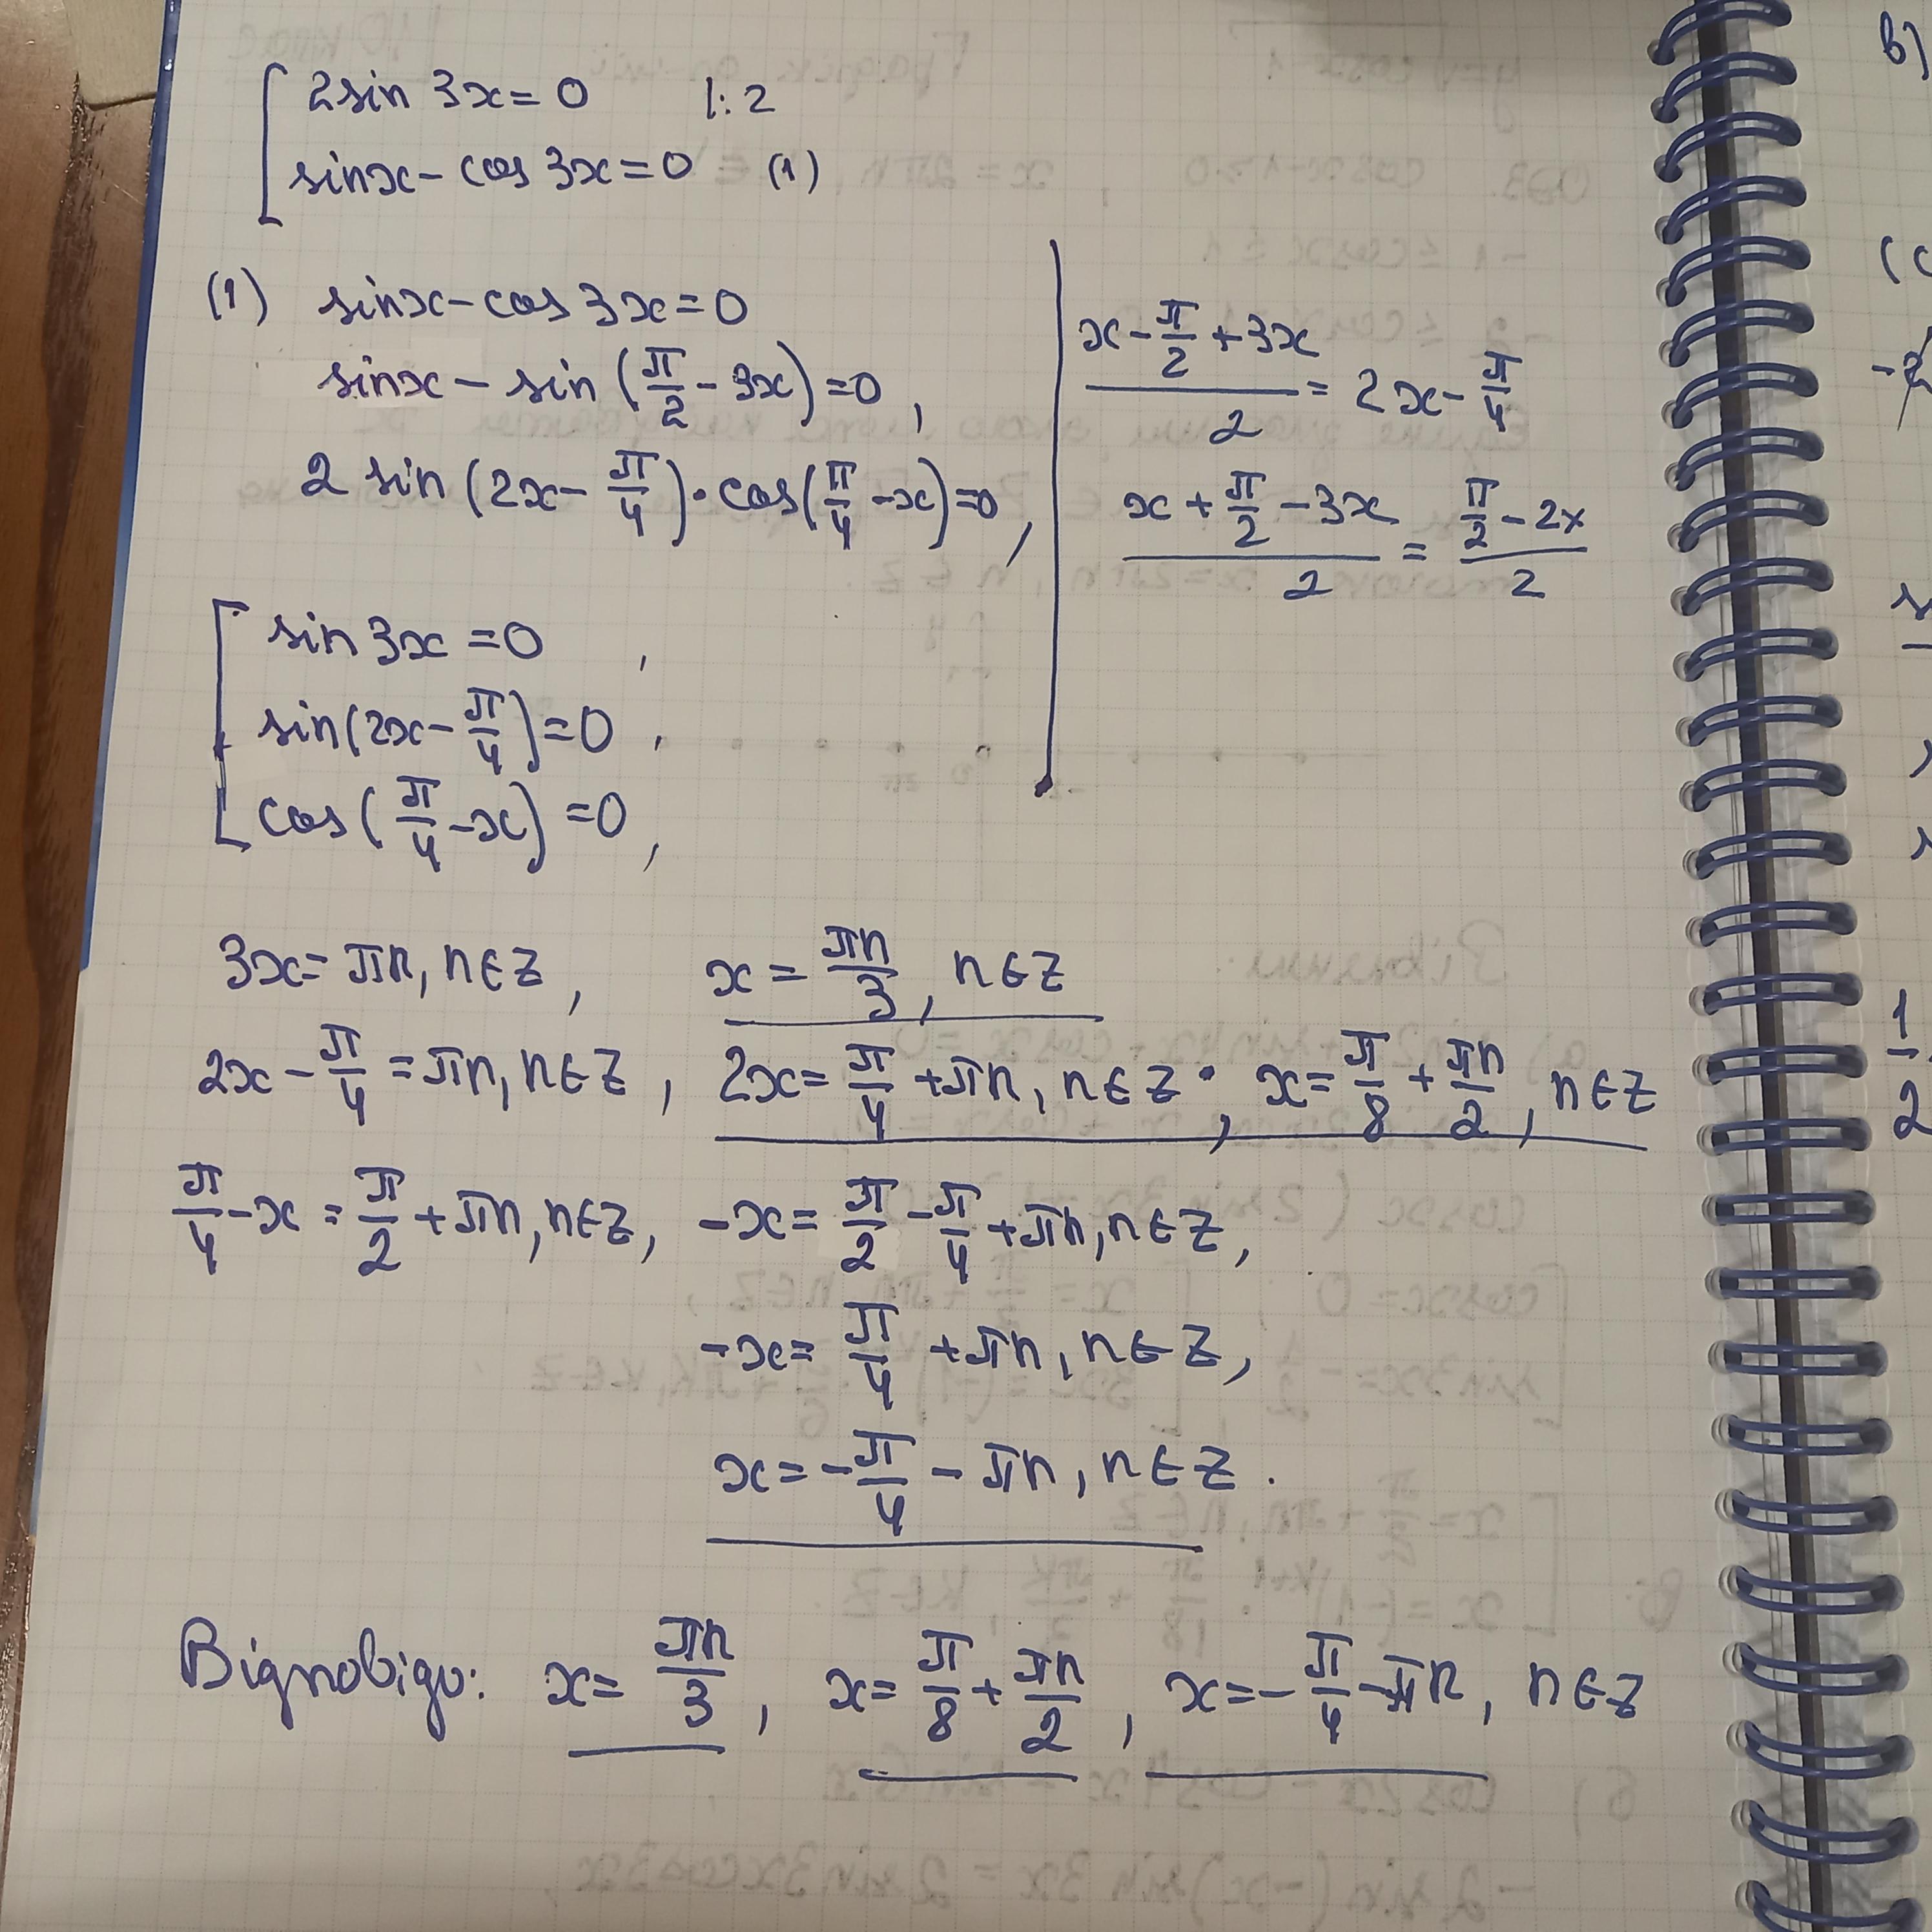 2sin 3x = 0 |: 2
sinx - cos 3x = 0 (1)
(1) sinx - cos 3x = 0
sinx - sin (π/2 - 3x) = 0,
2 sin (2x - π/4) · cos (π/4 - x) = 0,
(x - π/2 + 3x)/2 = 2x - π/4
(x + π/2 - 3x)/2 = (π/2 - 2x)/2
sin 3x = 0,
sin(2x - π/4) = 0,
cos(π/4 - x) = 0,
3x = πn, n∈Z, x = πn/3, n∈Z
2x - π/4 = πn, n∈Z, 2x = π/4 + πn, n∈Z, x = π/8 + πn/2, n∈Z
π/4 - x = π/2 + πn, n∈Z, -x = π/2 - π/4 + πn, n∈Z,
-x = π/4 + πn, n∈Z,
x = -π/4 - πn, n∈Z.
Відповідь: x = πn/3, x = π/8 + πn/2, x = -π/4 - πn, n∈Z
в)
1/2